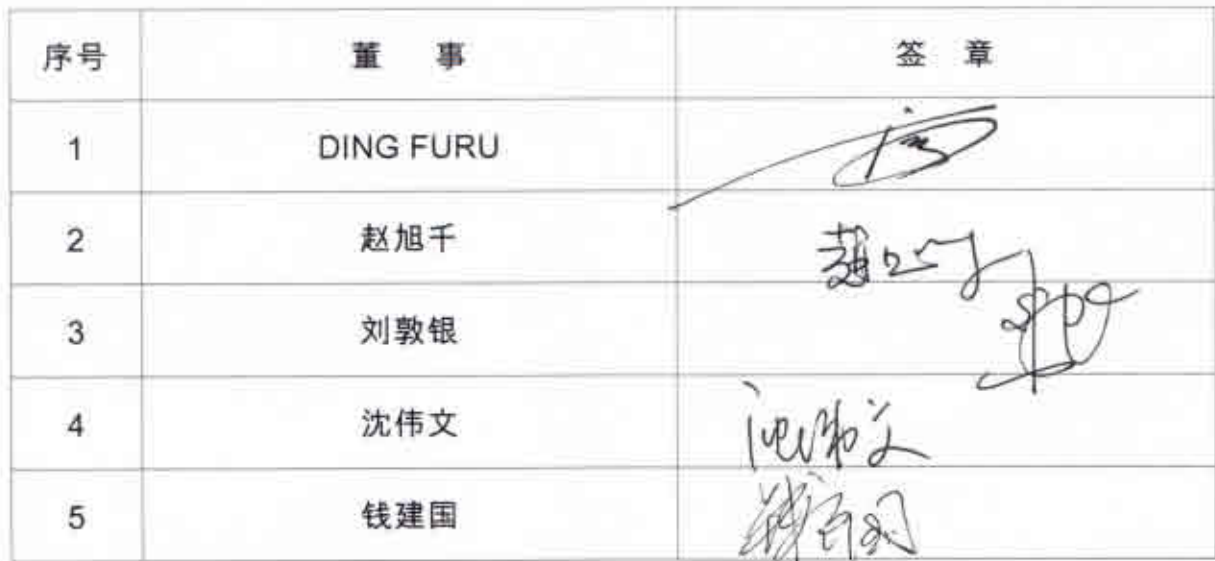 序号 董 事 签 章
1 DING FURU
2 赵旭千
3 刘敦银
4 沈伟文 沈伟文
5 钱建国 钱建国